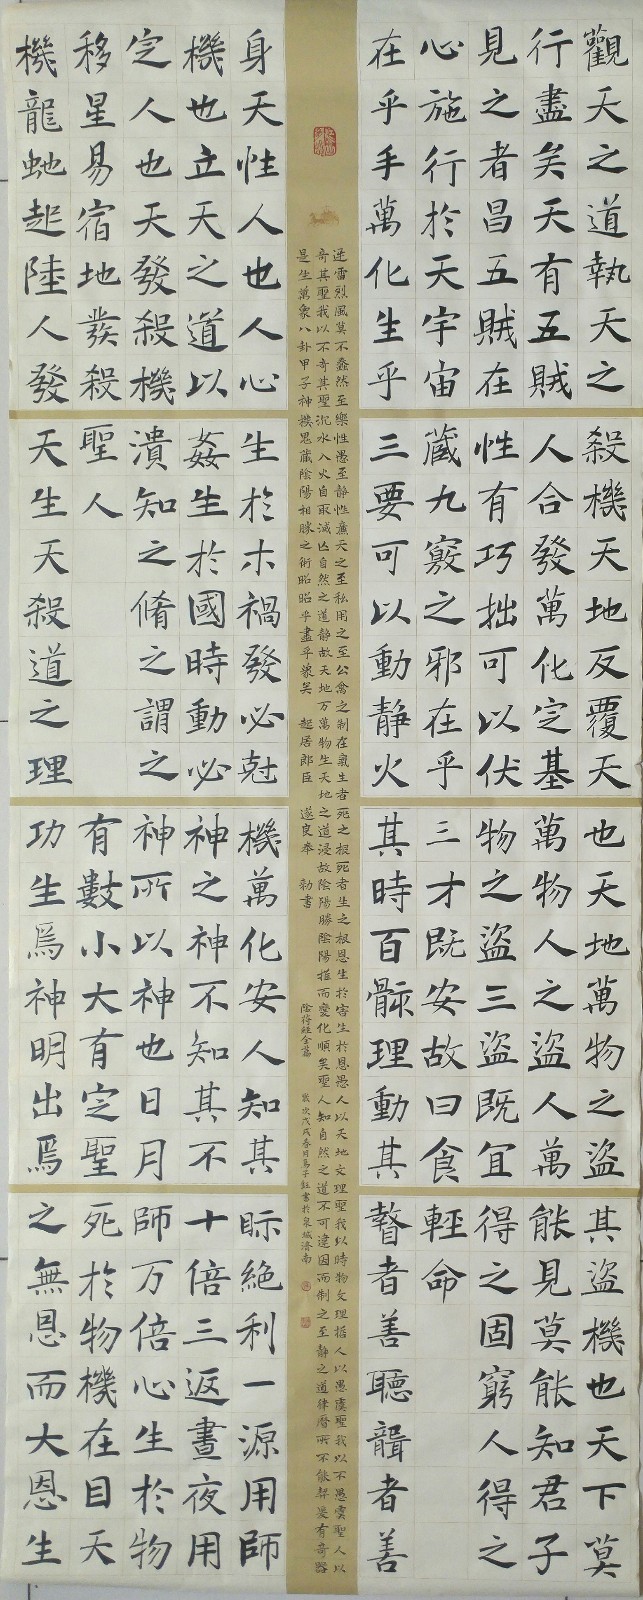 觀天之道執天之
行盡矣天有五賊
見之者昌五賊在
心施行於天宇宙
在乎手萬化生乎
身天性人也人心
機也立天之道以
定人也天發殺機
移星易宿地發殺
機龍虵起陸人發
殺機天地反覆天
人合發萬化定基
性有巧拙可以伏
藏九竅之邪在乎
三要可以動靜火
生於木禍發必尅
姦生於國時動必
潰知之脩之謂之
聖人
天生天殺道之理
也天地萬物之盜
萬物人之盜人萬
物之盜三盜既宜
三才既安故曰食
其時百骸理動其
機萬化安人知其
神之神不知其不
神所以神也日月
有數小大有定聖
功生焉神明出焉
其盜機也天下莫
能見莫能知君子
得之固窮人得之
輕命
瞽者善聽聾者善
眎絶利一源用師
十倍三返晝夜用
師万倍心生於物
死於物機在目天
之無恩而大恩生
迅雷烈風莫不蠢然至樂性愚至静性廉天之至私用之至公禽之制在氣生者死之根死者生之根恩生於害生於恩愚人以天地文理聖我以時物文理哲人以愚虞聖我以不愚虞聖人以
奇其聖我以不奇其聖沉水入火自取滅亡自然之道静故天地万萬物生天地之道浸故陰陽勝陰陽推而變化順矣聖人知自然之道不可違因而制之至静之道律曆所不能契爰有奇器
是生萬象八卦甲子神機鬼藏陰陽相勝之術昭昭乎盡乎象矣 起居郎臣 遂良奉 勅書 陰符經全篇 歲次戊戌春月馬子 書於泉城濟南